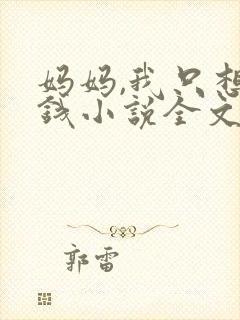 妈妈,我只想
钱小说全文
郭雷